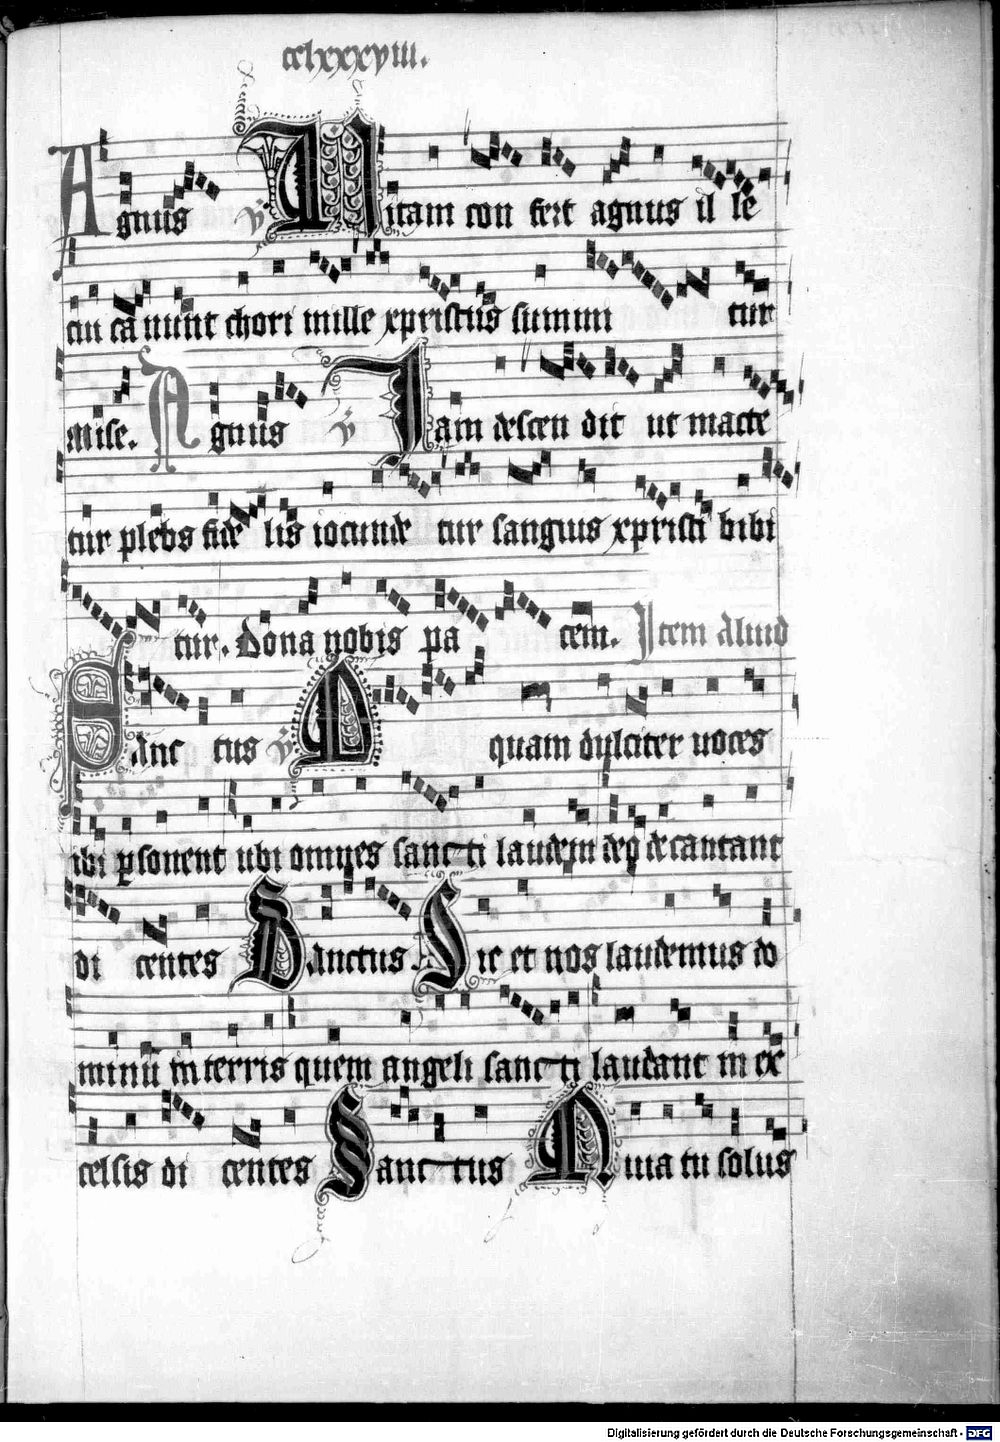 cclxxxviii.
Agnus ℣ Uitam con fert agnus il le
cui ca nunt chori mille xpristus summi tur
mise. Agnus ℣ Iam descen dit ut macte
tur plebs fide lis iocunde tur sanguis xpristi bibi
tur. Dona nobis pa cem. Item aliud
Sanc tus ℣ O quam dulciter uoces
ibi psonent ubi omnes sanc ti laudem deo decantant
di centes Sanctus Sic et nos laudemus do
minū in terris quem angeli sanc ti laudant in ex
celsis di centes Sanc tus Quia tu solus
Digitalisierung gefördert durch die Deutsche Forschungsgemeinschaft - DFG